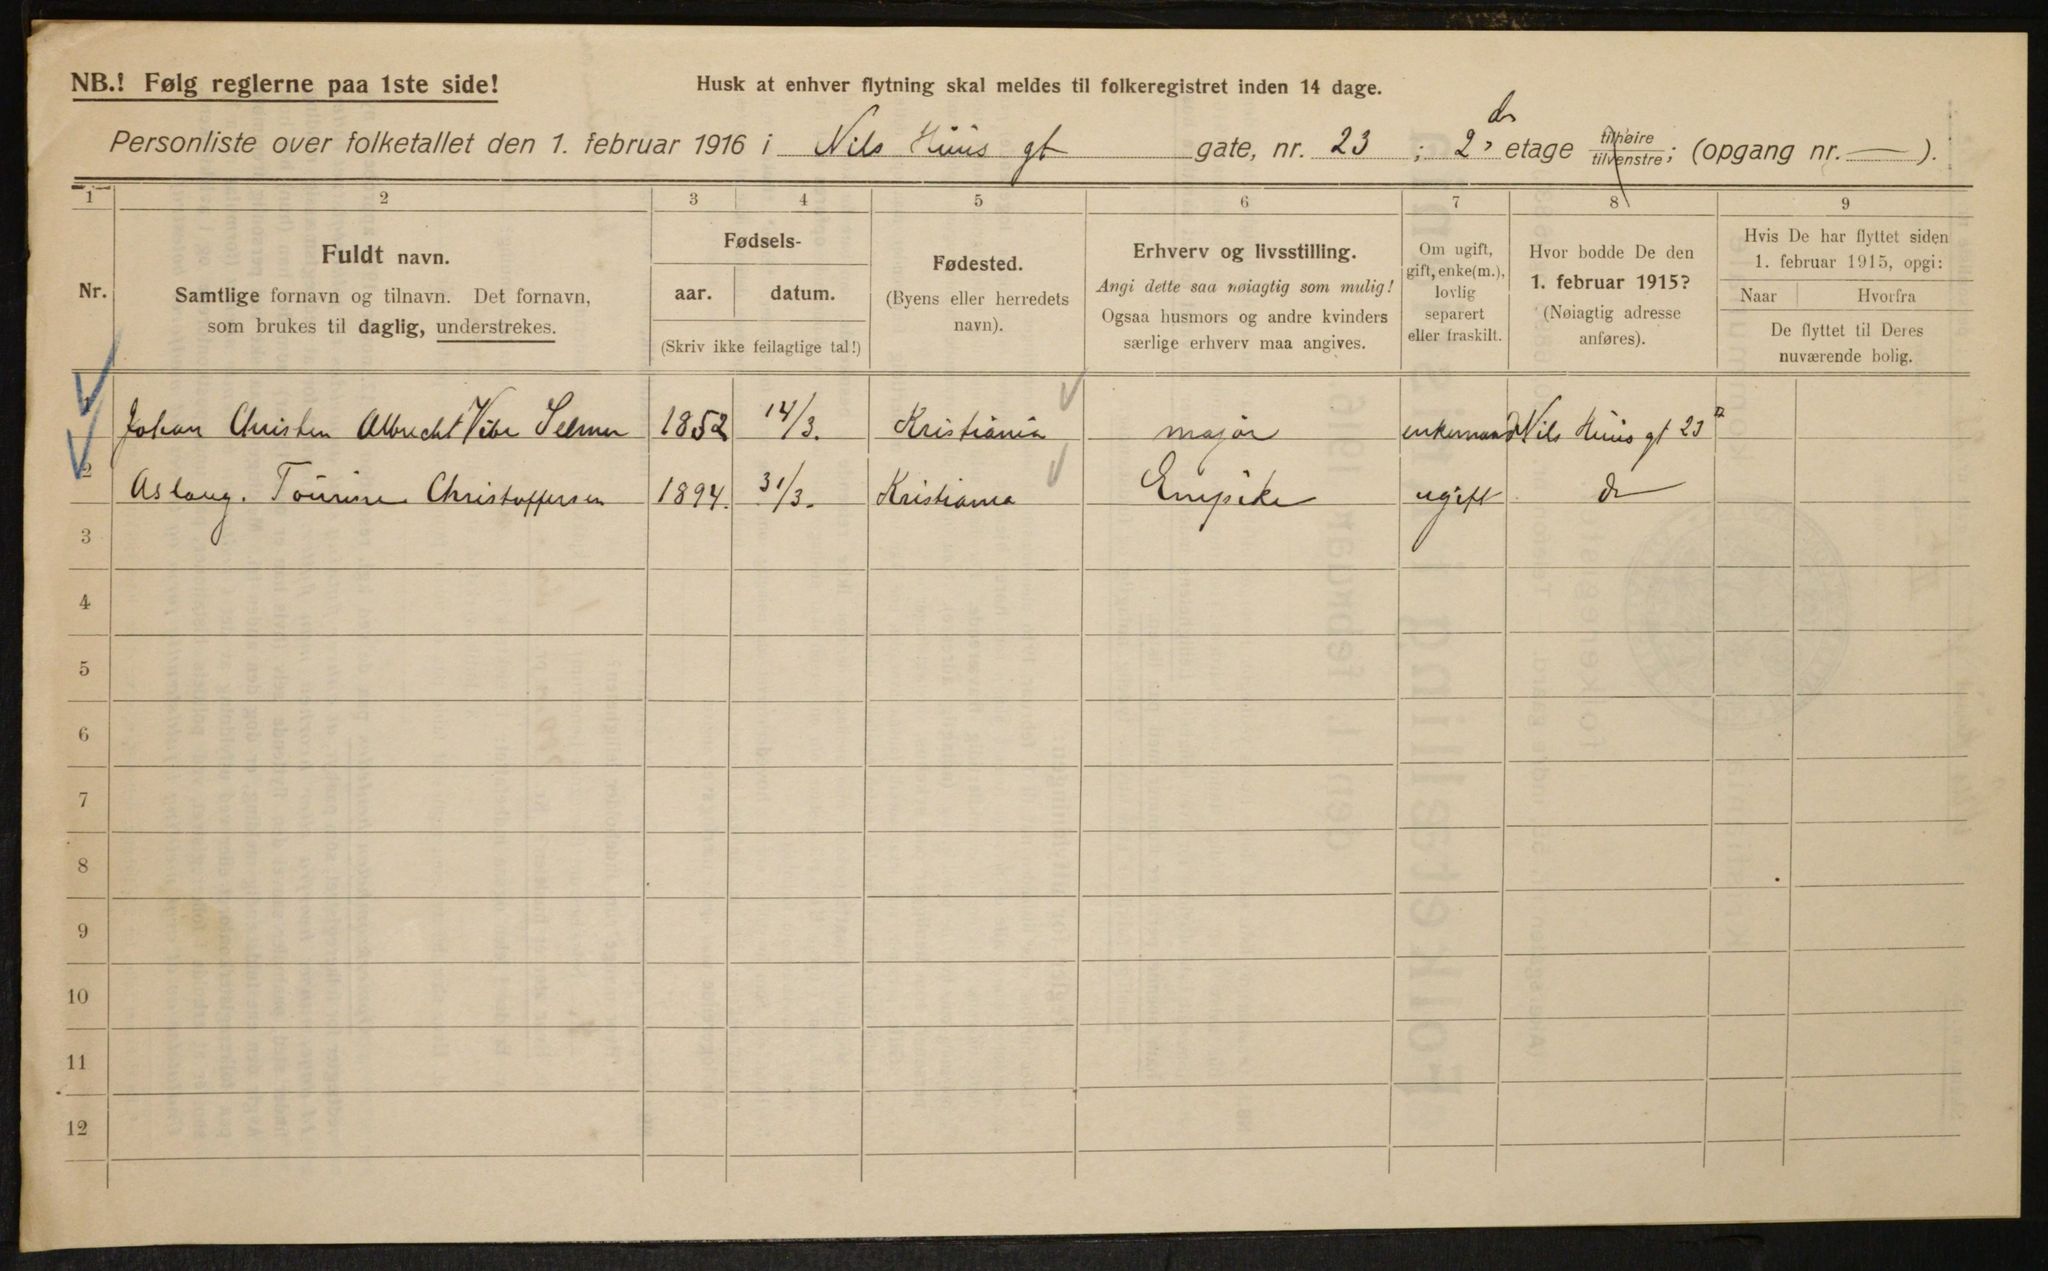 NB.! Følg reglerne paa 1ste side!
Husk at enhver flytning skal meldes til folkeregistret inden 14 dage.
Personliste over folketallet den 1. februar 1916 i Nils Huus gt gate, nr. 23 ; 2den etage tilhøire/tilvenstre; (opgang nr. — ).
1 2 3 4 5 6 7 8 9
Nr.
Fuldt navn.
Samtlige fornavn og tilnavn. Det fornavn,
som brukes til daglig, understrekes.
Fødsels-
aar. datum.
(Skriv ikke feilagtige tal!)
Fødested.
(Byens eller herredets
navn).
Erhverv og livsstilling.
Angi dette saa nøiagtig som mulig!
Ogsaa husmors og andre kvinders
særlige erhverv maa angives.
Om ugift,
gift, enke(m.),
lovlig
separert
eller fraskilt.
Hvor bodde De den
1. februar 1915?
(Nøiagtig adresse
anføres).
Hvis De har flyttet siden
1. februar 1915, opgi:
Naar Hvorfra
De flyttet til Deres
nuværende bolig.
1 Johan Christen Albrecht Vibe Selmer 1852 14/3. Kristiania major enkemand Nils Huus gt 23
2 Aslaug. Tourine Christoffersen 1894. 31/3. Kristiania Enepike ugift do
3
4
5
6
7
8
9
10
11
12